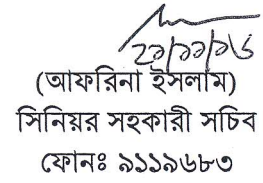 ২১/১১/১৬
(আফরিনা ইসলাম)
সিনিয়র সহকারী সচিব
ফোনঃ ৯১১৯৬৮৩